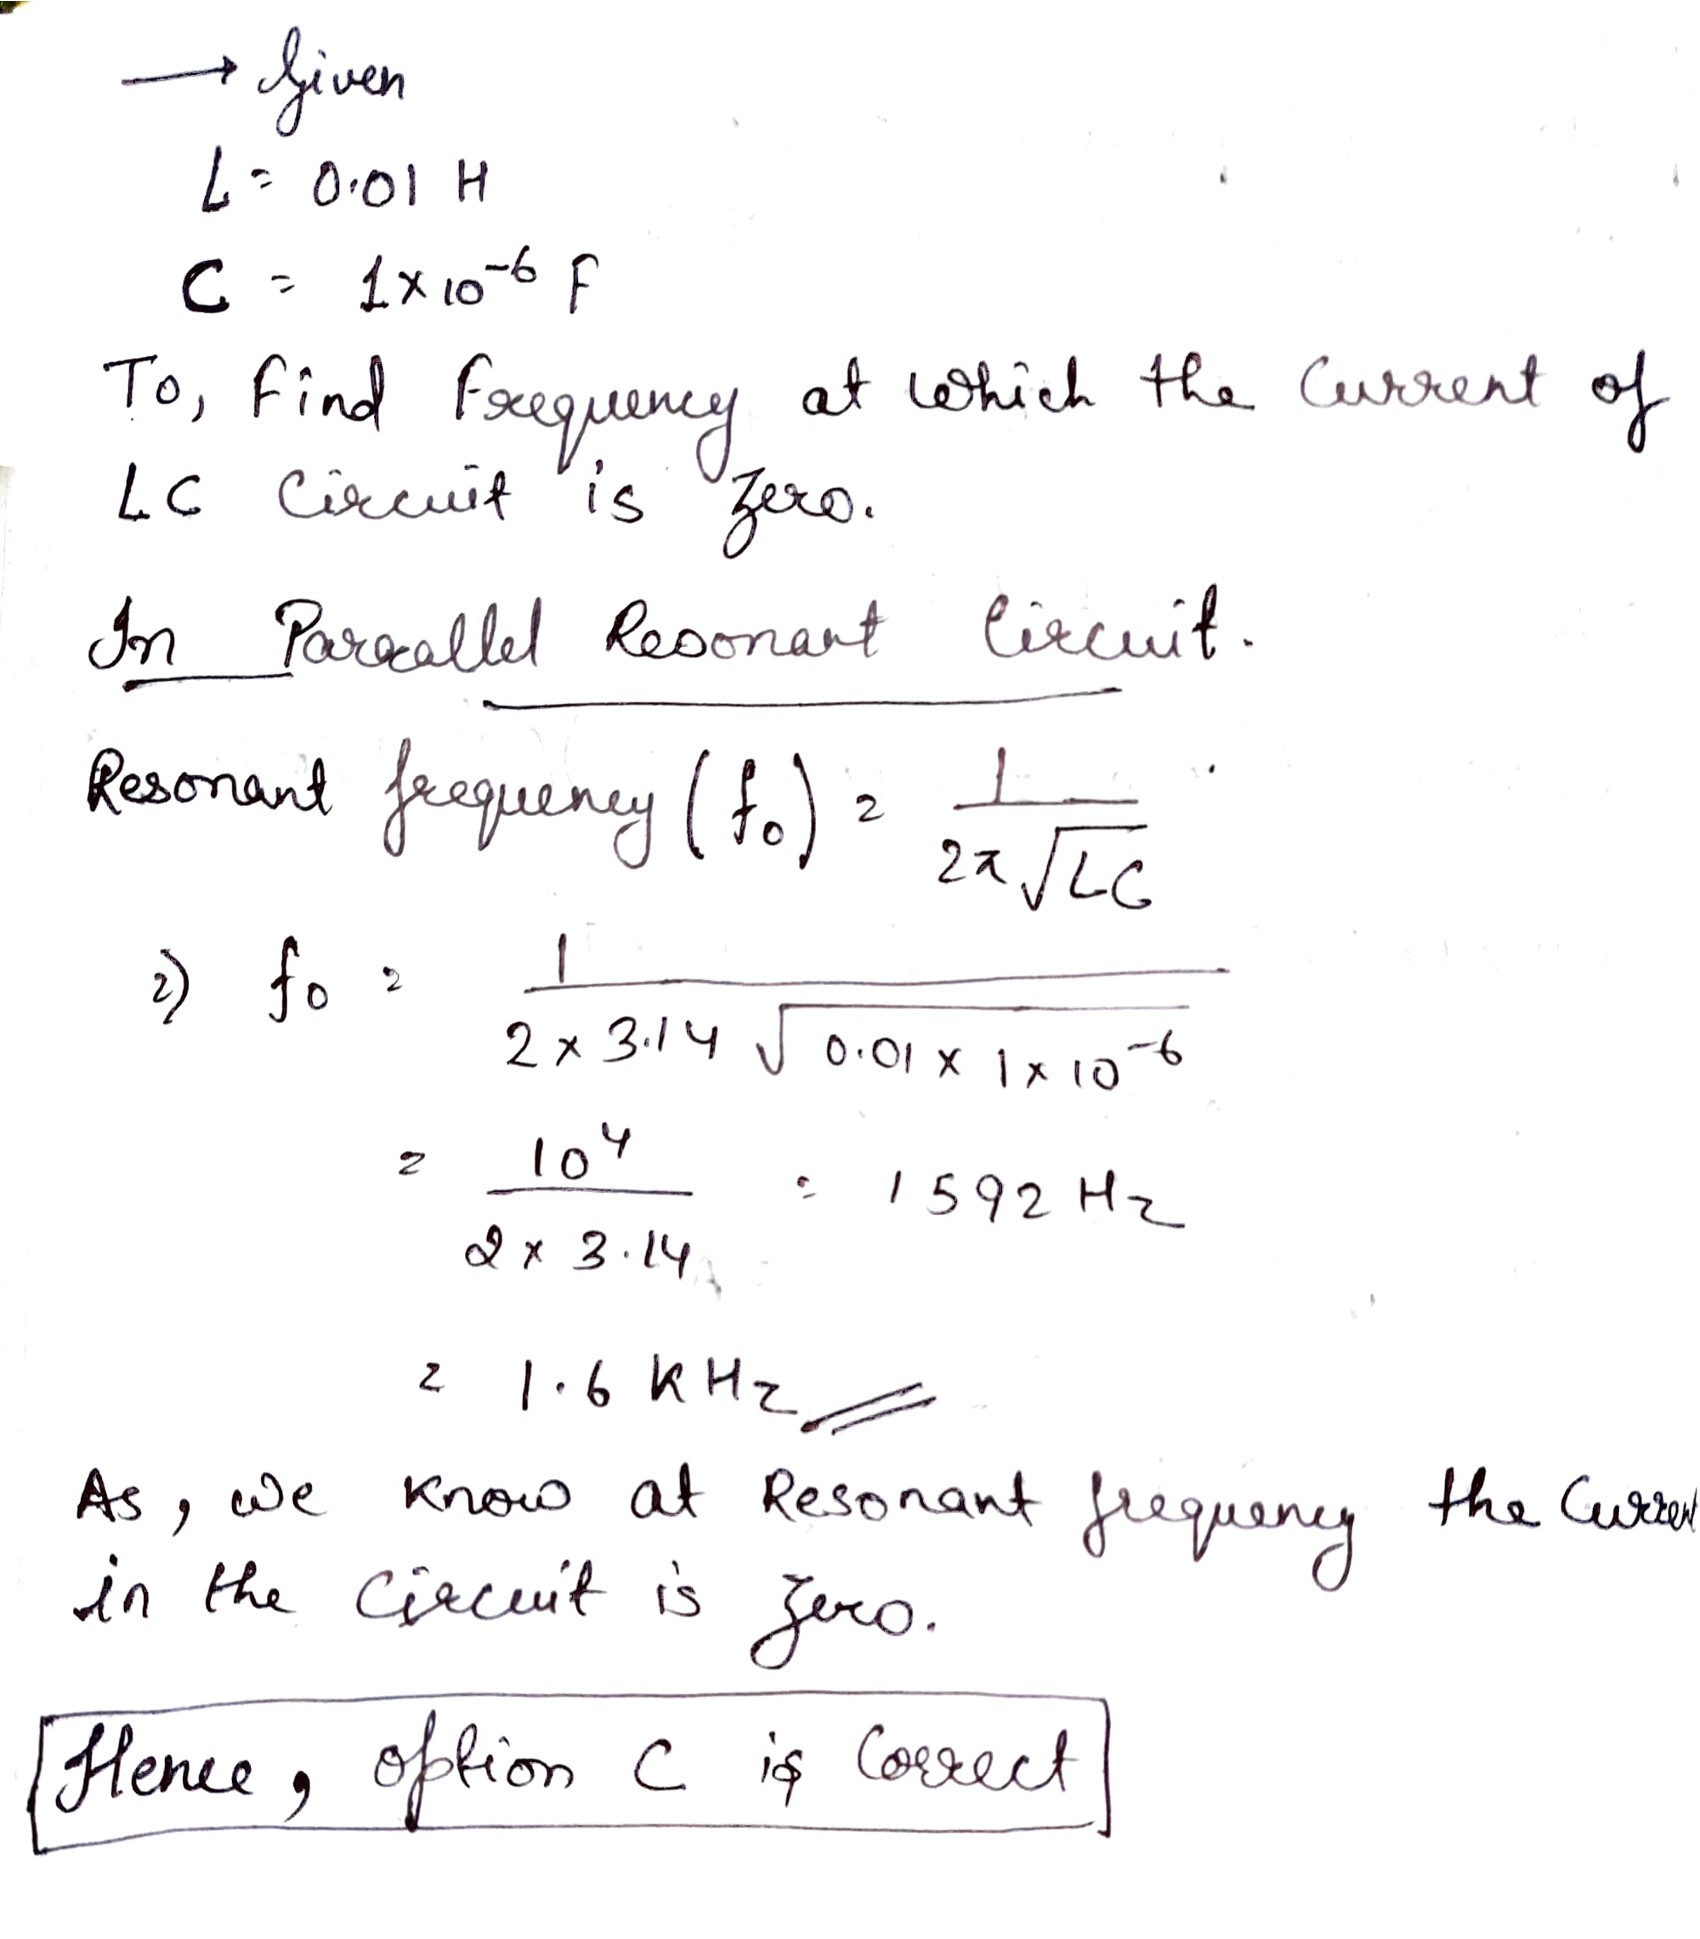 → Given
L = 0.01 H
C = 1×10⁻⁶ F
To, find frequency at which the Current of
LC Circuit is zero.
In Parallel Resonant Circuit.
Resonant frequency (f₀) = 1 / 2π√LC
⇒ f₀ = 1 / 2 × 3.14 √0.01 × 1 × 10⁻⁶
= 10⁴ / 2 × 3.14 = 1592 Hz
= 1.6 KHz
As, we know at Resonant frequency the Current
in the Circuit is zero.
Hence, option C is Correct